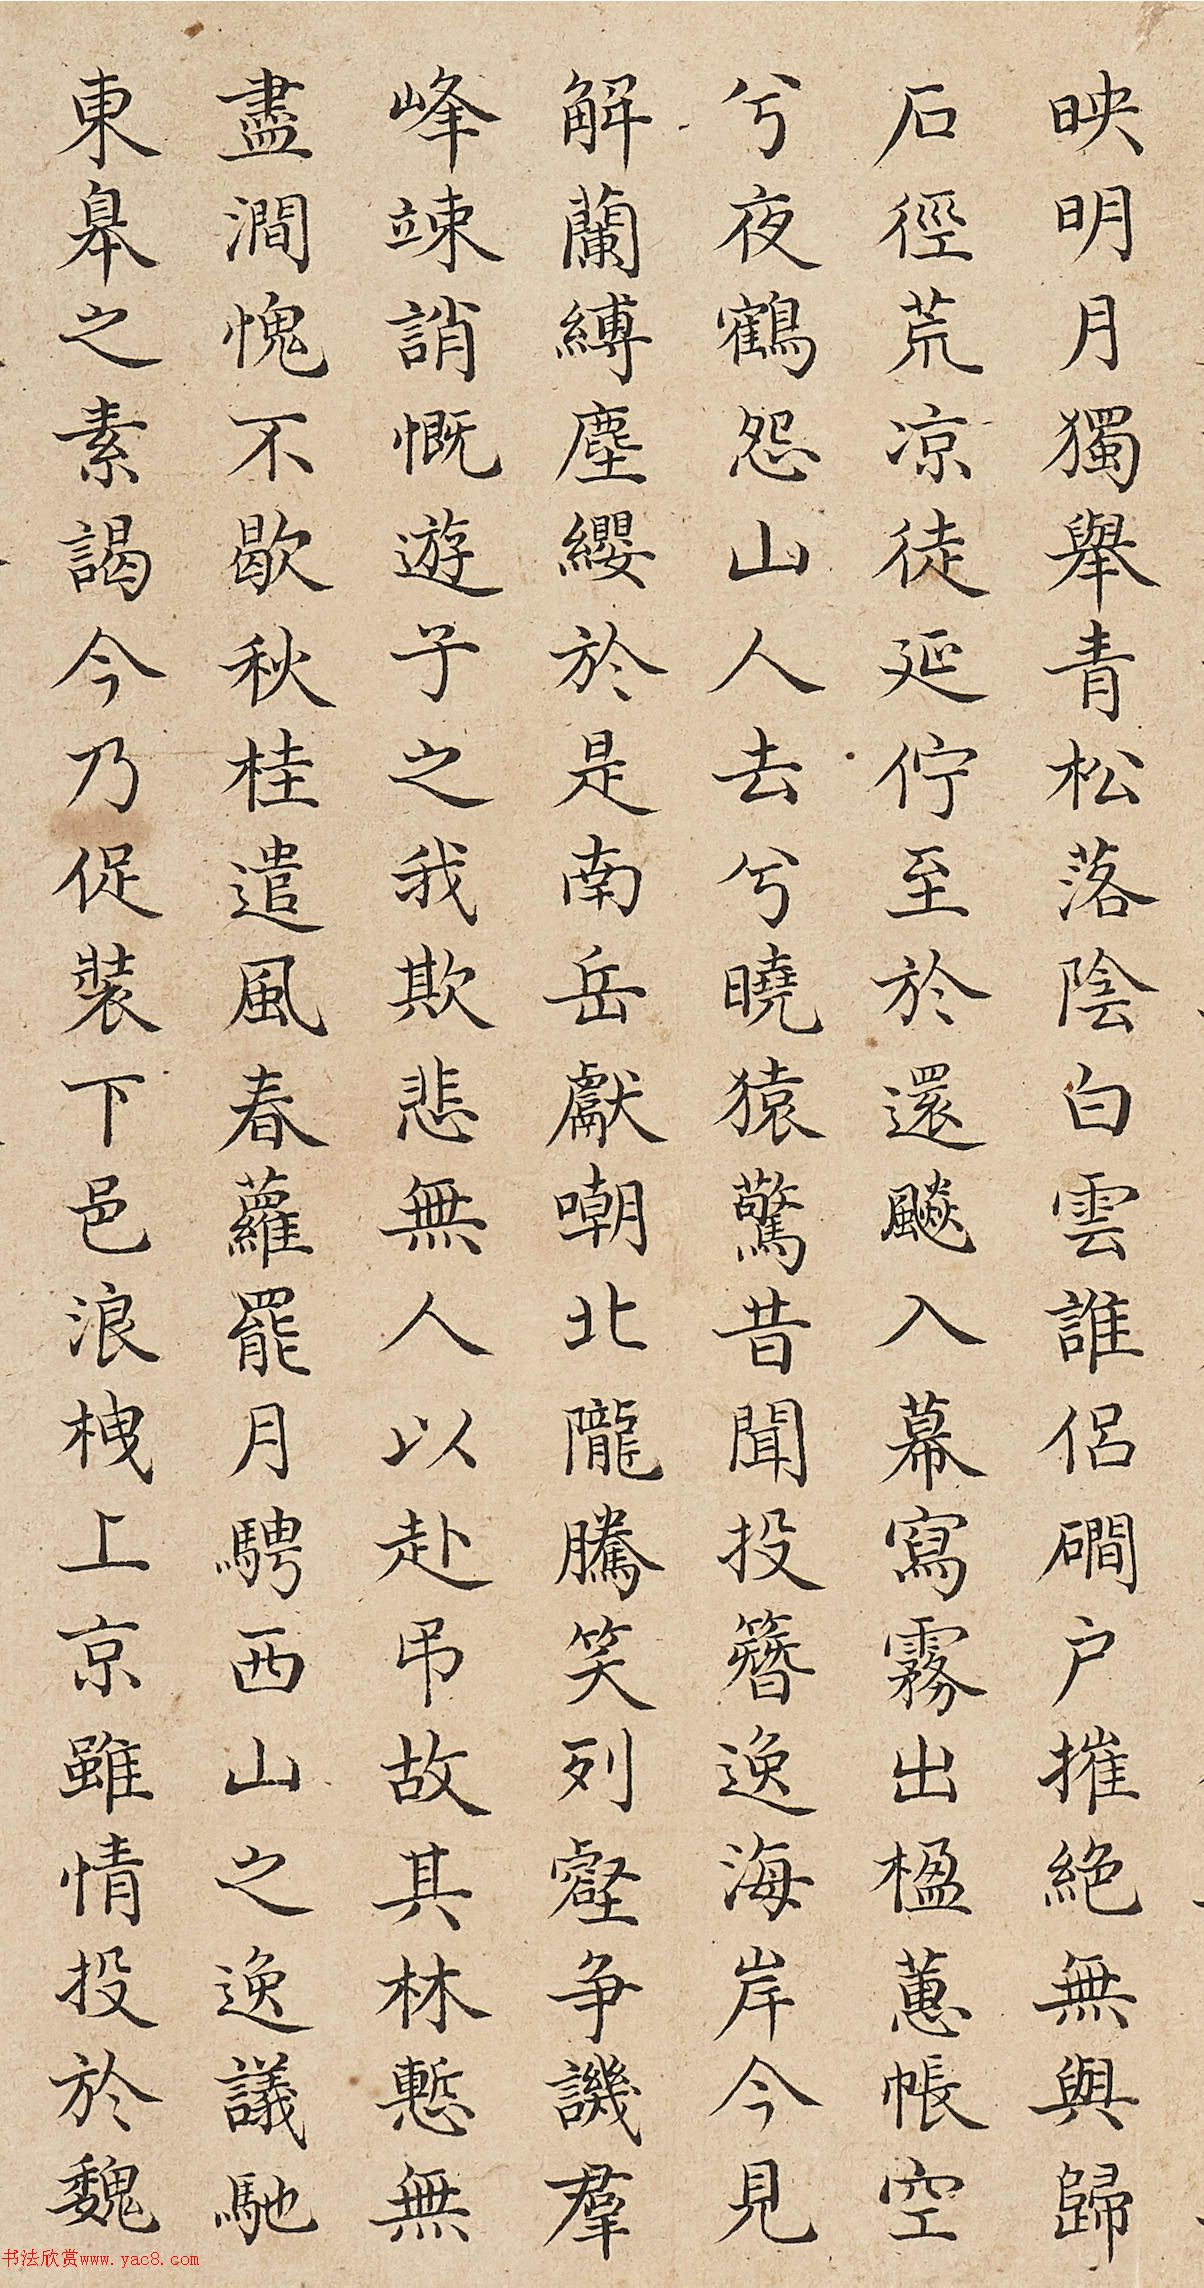 映明月獨舉青松落陰白雲誰侶磵户摧絶無與歸
石徑荒凉徒延佇至於還飈入幕寫霧出楹蕙帳空
兮夜鶴怨山人去兮曉猿驚昔聞投簪逸海岸今見
解蘭縛塵纓於是南岳獻嘲北隴騰笑列壑争譏羣
峰竦誚慨遊子之我欺悲無人以赴吊故其林慙無
盡澗愧不歇秋桂遣風春蘿罷月騁西山之逸議馳
東臯之素謁今乃促裝下邑浪栧上京雖情投於魏
书法欣赏www.yac8.com